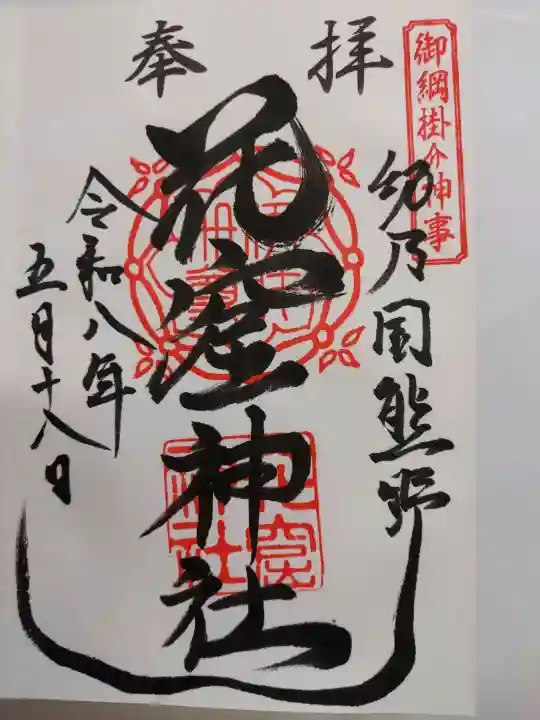 御綱掛け神事
奉拝
紀乃国熊野
花窟神社
令和八年
五月十八日
花窟神社